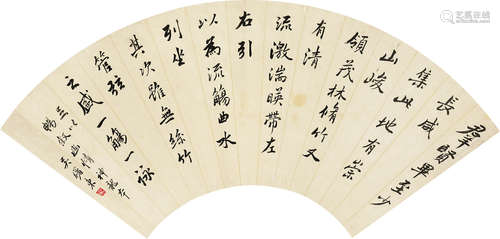 羣賢畢至少
長咸
集此地有崇
山峻
領茂林脩竹又
有清
流激湍暎帶左
右引
以為流觴曲水
列坐
其次雖無絲竹
管弦
之盛一觴一詠
足以
暢敘幽情 神龍本